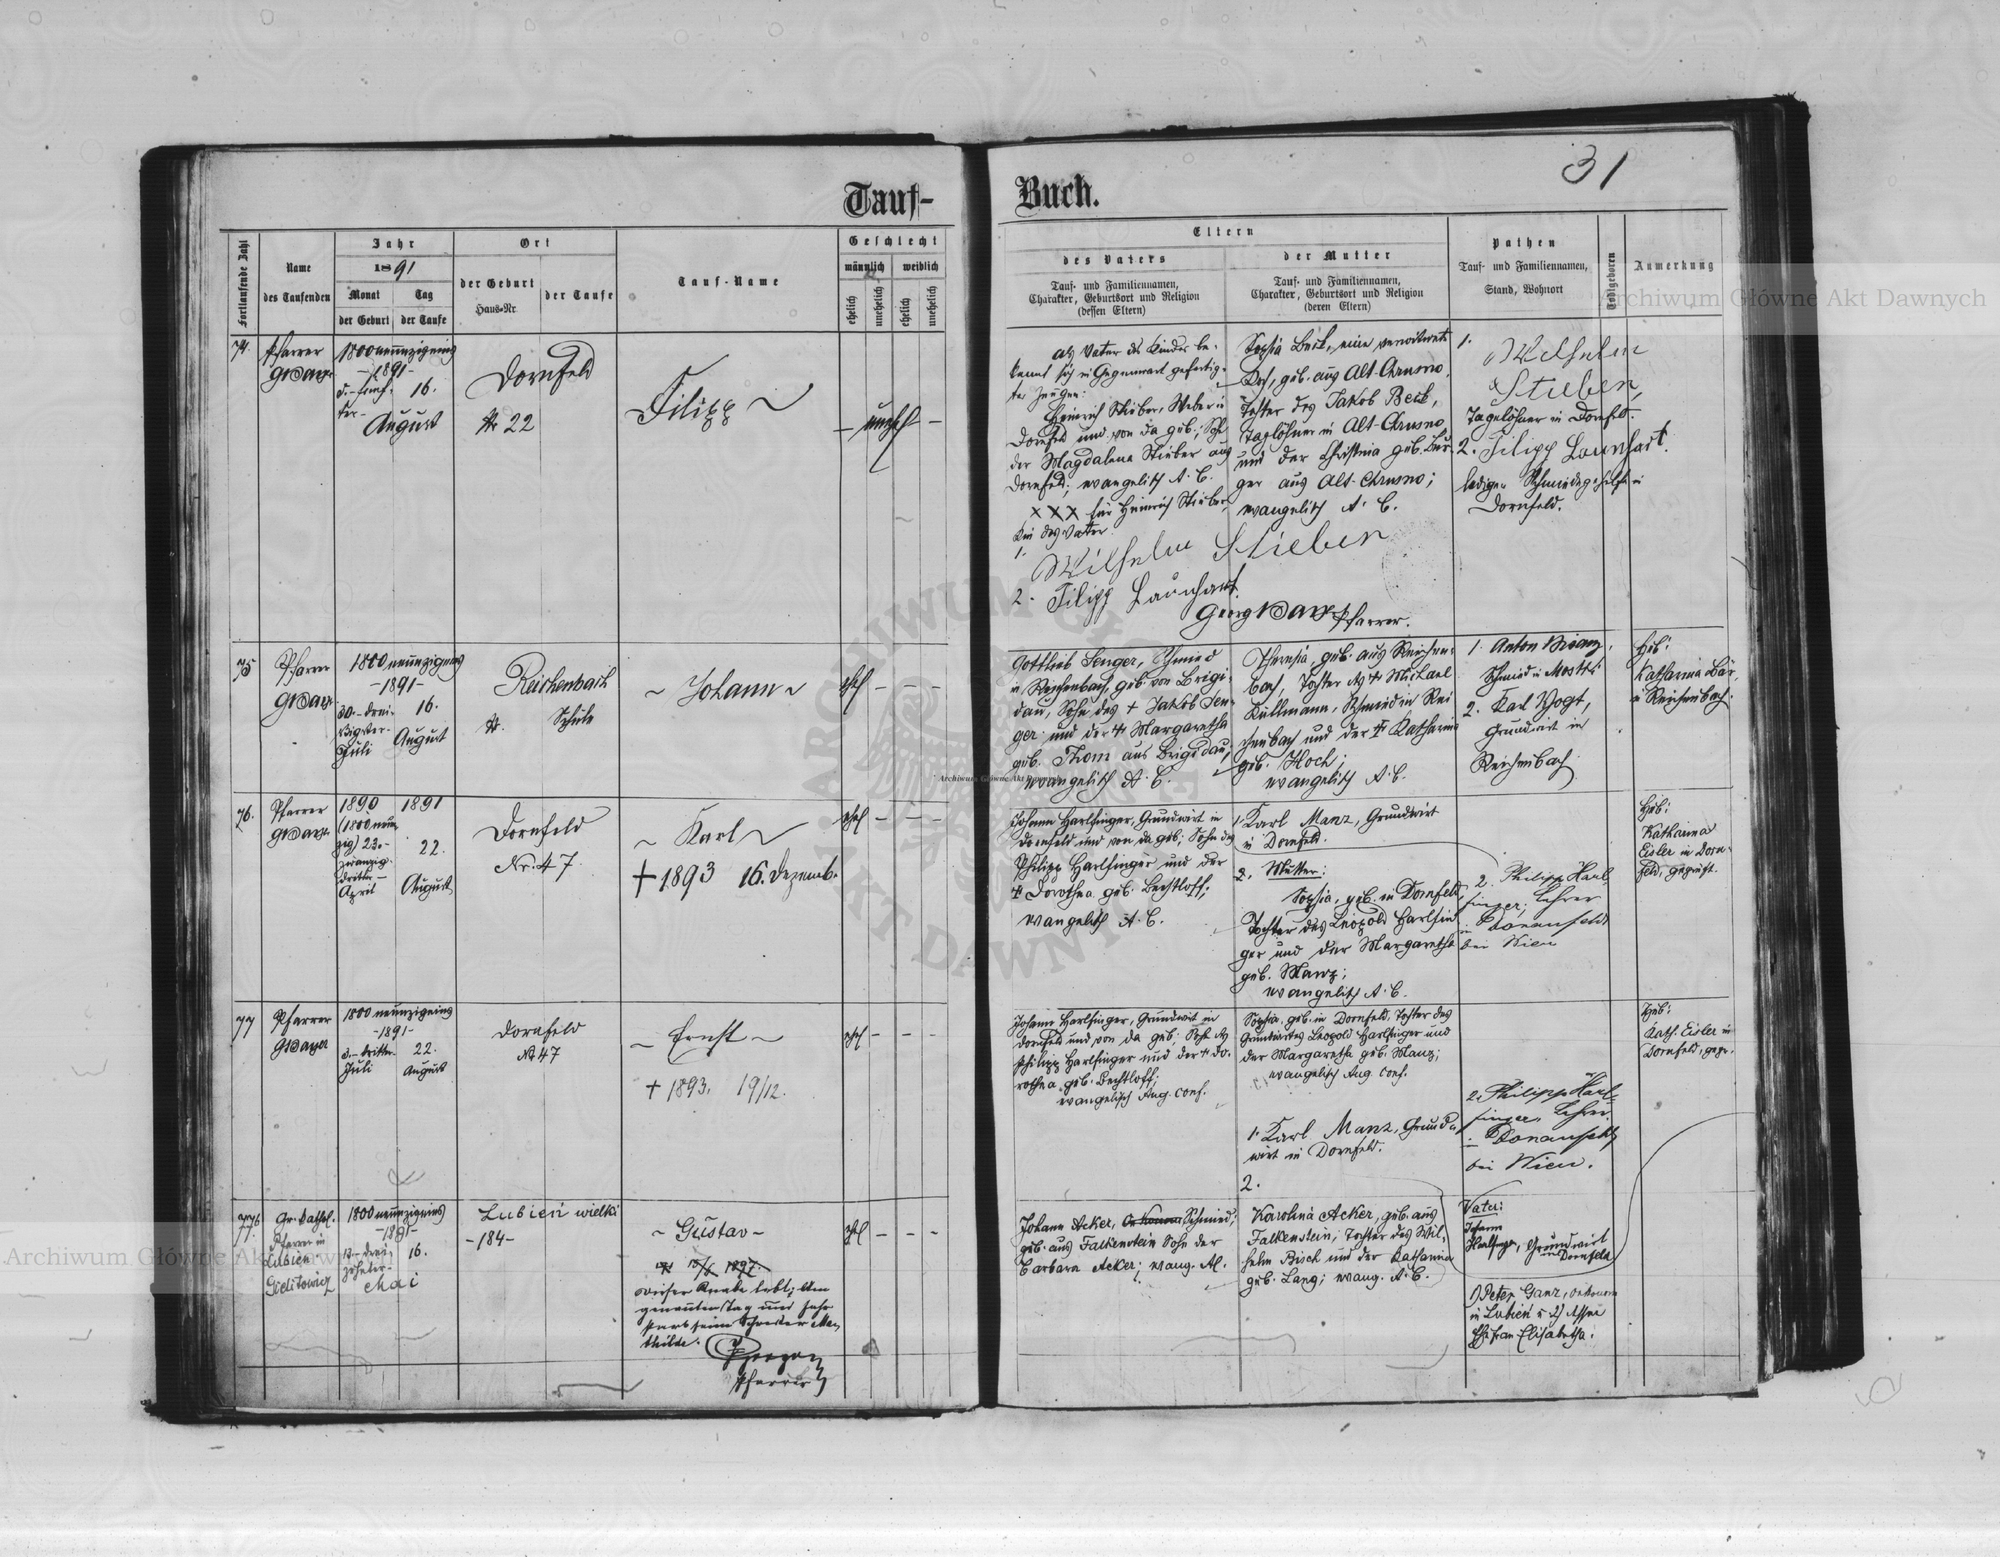 31
Tauf-
Buch.
Fortlaufende Zahl
Name
des Taufenden
Jahr
1891
Monat
der Geburt
Tag
der Taufe
Ort
der Geburt
Haus-Nr.
der Taufe
Tauf-Name
Geschlecht
männlich
weiblich
ehelich
unehelich
ehelich
unehelich
Eltern
des Vaters
Tauf- und Familiennamen,
Charakter, Geburtsort und Religion
(dessen Eltern)
der Mutter
Tauf- und Familiennamen,
Charakter, Geburtsort und Religion
(deren Eltern)
Pathen
Tauf- und Familiennamen,
Stand, Wohnort
Todtgeboren
Anmerkung
74.
Pfarrer
1800neunzigeins
-1891-
16.
August
Dornfeld
Nr 22
Filipp
unehel
als Vater des Kindes be-
kennt sich in Gegenwart gefertig-
ter Zeugen:
Heinrich Stieber, Weber in
Dornfeld und von da geb.; Sohn
der Magdalena Stieber aus
Dornfeld; evangelisch A. C.
XXX für Heinrich Stieber,
Kindesvater
1.
Wilhelm Stieben
2. Filipp Launhart.
Georg Bauer Pfarrer.
Sophia Beck, eine verwitwete
geb. aus Alt-Chrusno,
Tochter des Jakob Beck,
Taglöhner in Alt-Chrusno
und der Christina geb. Bur-
ger aus Alt-Chrusno;
evangelisch A. C.
1.
Wilhelm
Stieben,
Tagelöhner in Dornfeld
2. Filipp Launhart.
lediger Schmiedgehilfe in
Dornfeld.
75
Pfarrer
1800neunzigeins
-1891-
30.-drei-
ßigster-
Juli
16.
August
Reichenbach
Nr. Schule
Johann
ehel
Gottlieb Senger, Schmied
in Reichenbach, geb. von Brigi-
dau, Sohn des + Jakob Sen-
ger und der + Margaretha
geb. Thom aus Brigidau,
evangelisch A. C.
Theresia, geb. aus Reichen-
bach, Tochter des + Michael
Küllmann, Schmied in Rei
chenbach und der + Katharina
geb. Hoch;
evangelisch A. C.
1. Anton
Schmied in
2. Karl Vogt,
Grundwirt in
Reichenbach
Heb:
Katharina Bär,
in Reichenbach.
76.
Pfarrer
1890
(1800 neun
zig) 23.-
zwanzig-
dritte-
April
1891
22.
August
Dornfeld
Nr. 47
Karl
+ 1893 16. Dezemb.
ehel
Johann Harlfinger, Grundwirt in
Dornfeld und von da geb; Sohn des
Philipp Harlfinger und der
+ Dorothea geb. Bechtloff;
evangelisch A. C.
1. Karl Manz, Grundwirt
in Dornfeld.
2. Mutter:
Sophia, geb. in Dornfeld,
Tochter des Leopold Harlfin
ger und der Margaretha
geb. Manz;
evangelisch A. C.
2. Philipp Harl-
finger; Lehrer
in Donaufeld
bei Wien
Heb:
Katharina
Eisler in Dorn-
feld, geprüft.
77
Pfarrer
1800neunzigeins
-1891-
3.-dritte-
Juli
22.
August
Dornfeld
Nr 47
Ernst
+ 1893. 19/12.
ehel
Johann Harlfinger, Grundwirt in
Dornfeld und von da geb; Sohn des
Philipp Harlfinger und der + Do-
rothea geb. Bechtloff;
evangelisch Aug. Conf.
Sophia, geb. in Dornfeld, Tochter des
Grundwirtes Leopold Harlfinger und
der Margaretha geb. Manz;
evangelisch Aug. Conf.
1. Karl Manz, Grund-
wirt in Dornfeld.
2.
2. Philipp Harl-
finger, Lehrer
in Donaufeld
bei Wien.
Heb:
Kath. Eisler in
Dornfeld, gepr.
77b
Gr. kathol.
Pfarrer in
Lubien
1800neunzigeins
-1891-
13.-drei-
zehnter-
16.
Mai
Lubień wielki
-184-
-Gustav-
ehel
Dieser Knabe lebt; am
genannten Tag und Jahr
starb seine Schwester Ma-
thilde.
Pfarrer
Johann Acker, Oekonom Schmied;
geb. aus Falkenstein Sohn der
Barbara Acker; evang. Al.
Karolina Acker, geb. aus
Falkenstein, Tochter des Wil-
helm Bisch und der Katharina
geb. Lang; evang. A. C.
Vater:
Johann
Harlfinger, Grundwirt
in Dornfeld
1) Peter Ganz, Oekonom
in Lubień u 2) dessen
Ehefrau Elisabetha.
Archiwum Główne Akt Dawnych
Archiwum Główne Akt Dawnych
Archiwum Główne Akt Dawnych